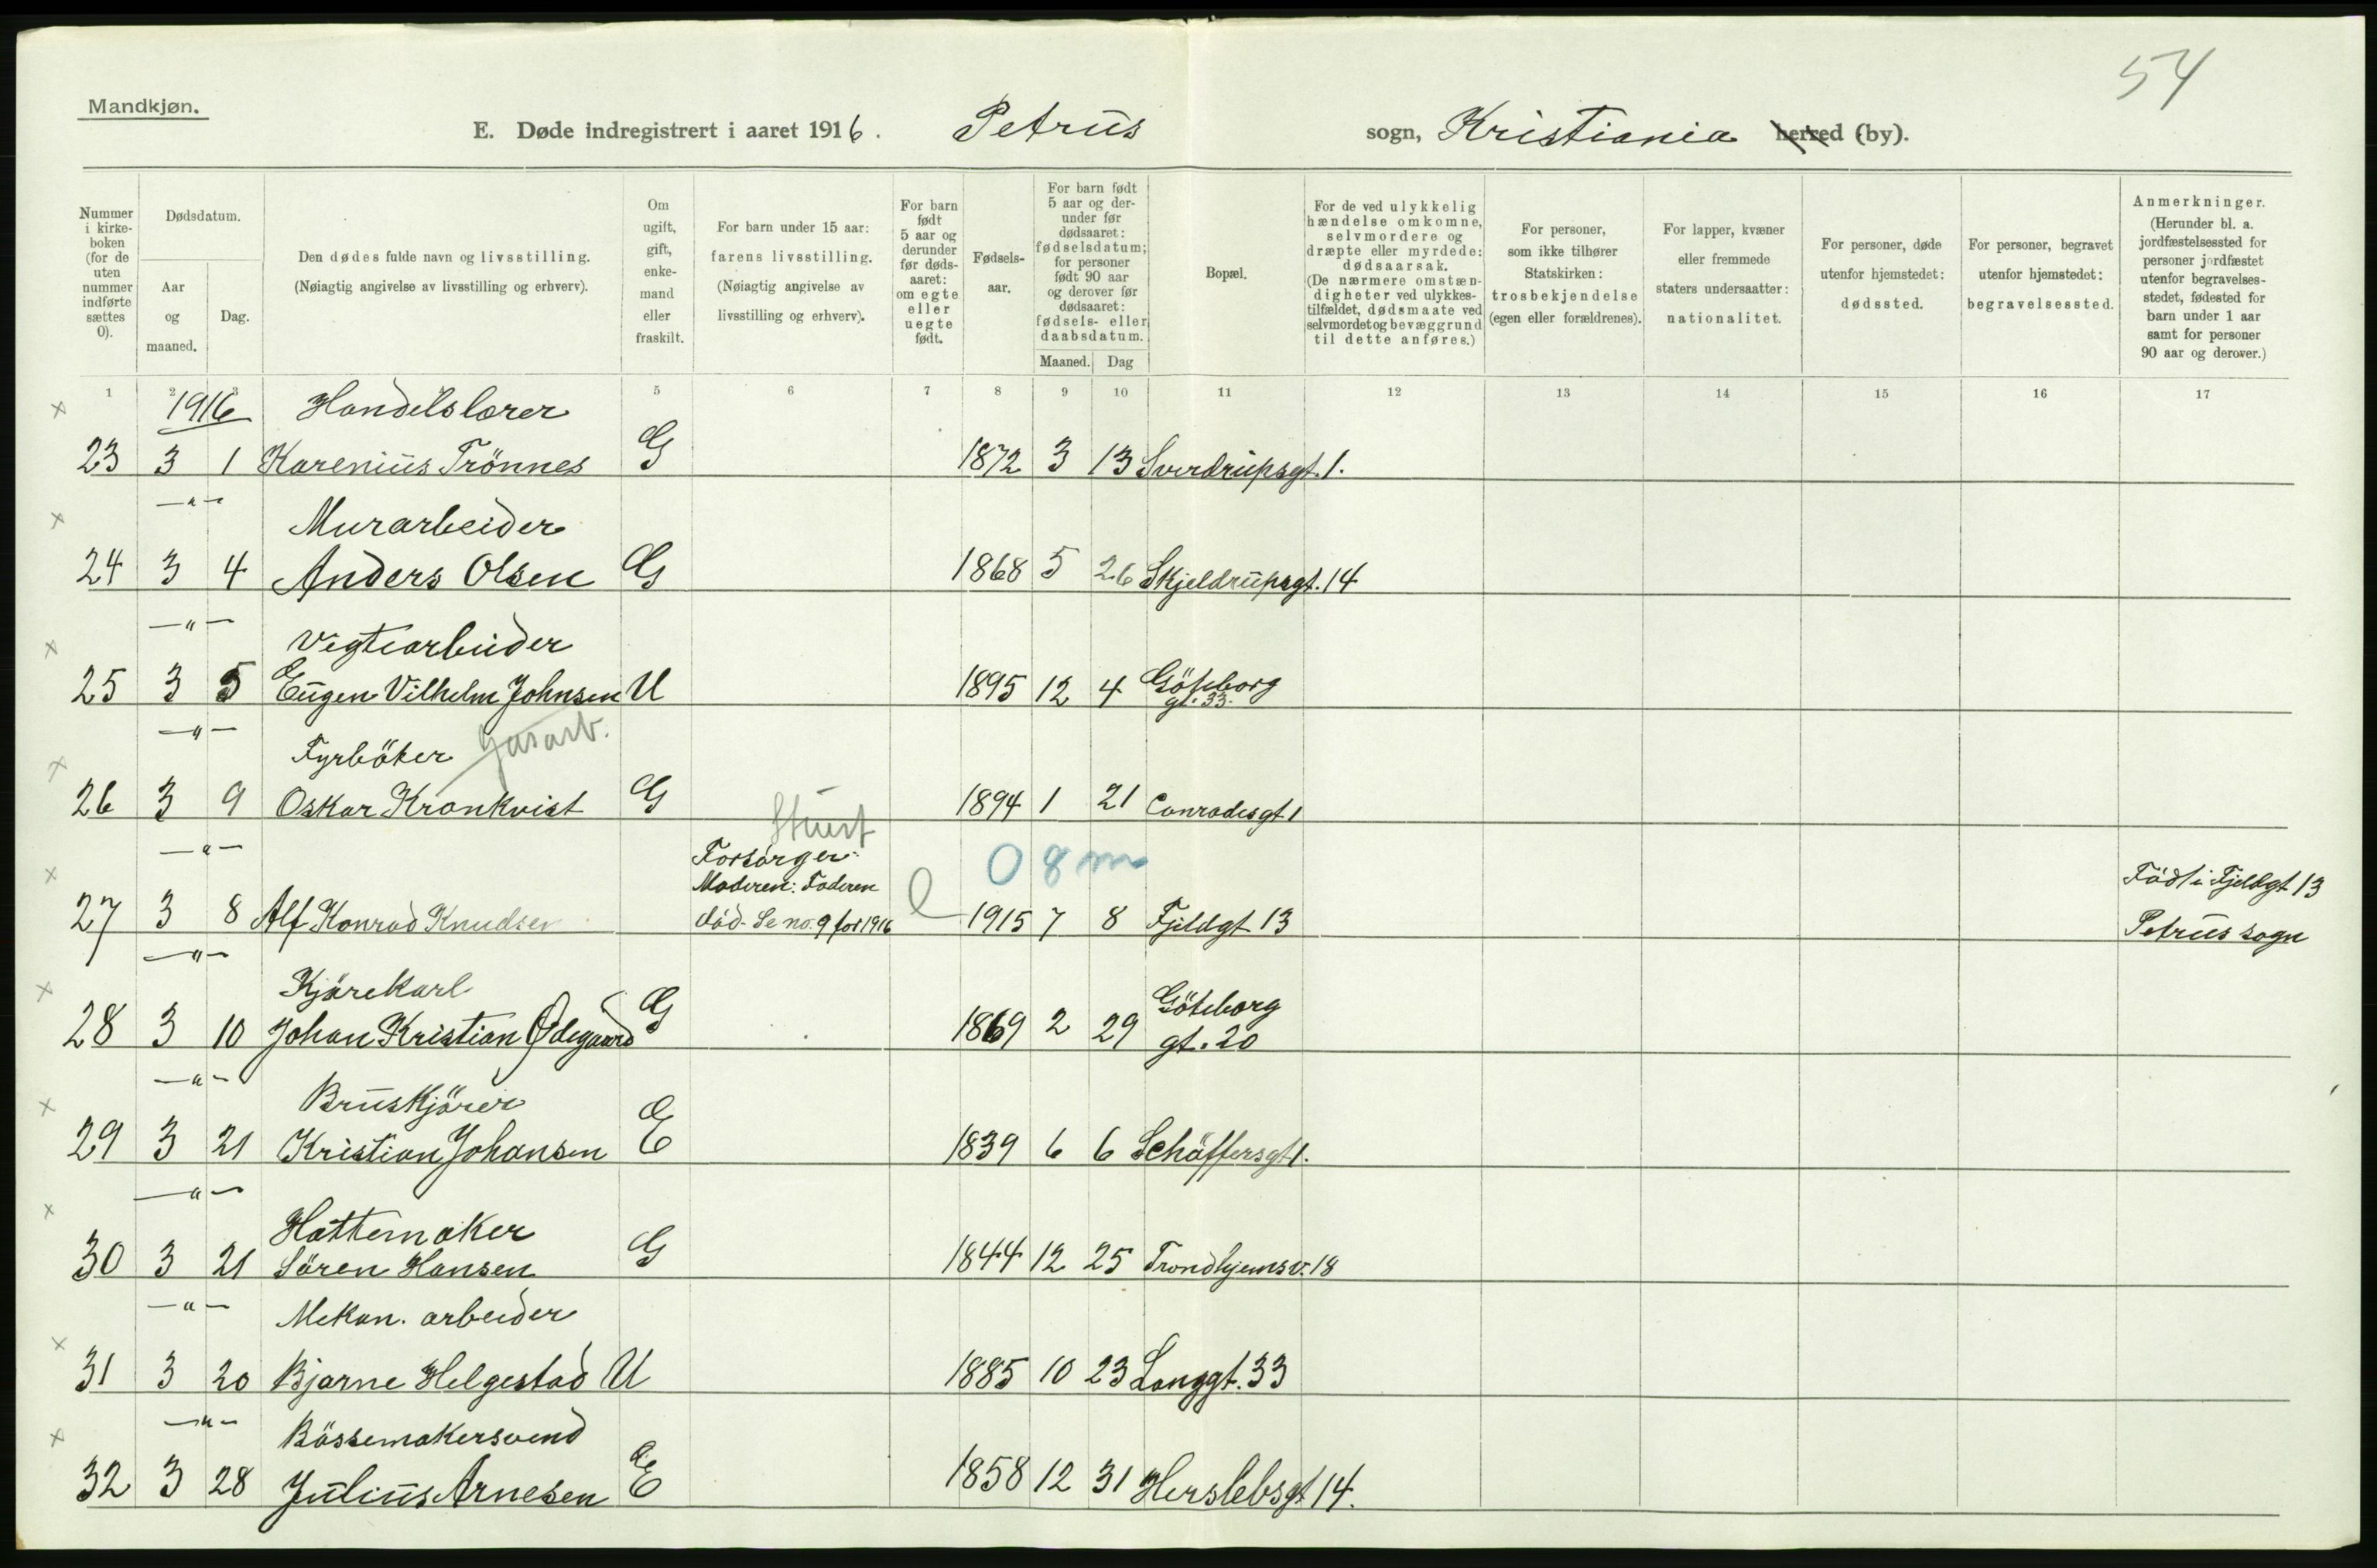 54
Mandkjøn.
E. Døde indregistrert i aaret 1916. Petrus sogn, Kristiania herred (by).
Nummer i kirke-boken (for de uten nummer indførte sættes 0).
Dødsdatum.
Aar og maaned.
Dag.
Den dødes fulde navn og livsstilling.
(Nøiagtig angivelse av livsstilling og erhverv).
Om ugift, gift, enke-mand eller fraskilt.
For barn under 15 aar: farens livsstilling.
(Nøiagtig angivelse av livsstilling og erhverv).
For barn født 5 aar og derunder før døds-aaret: om egte eller uegte født.
Fødsels-aar.
For barn født 5 aar og der-under før dødsaaret: fødselsdatum; for personer født 90 aar og derover før dødsaaret: fødsels- eller daabsdatum.
Maaned. Dag
Bopæl.
For de ved ulykkelig hændelse omkomne, selvmordere og dræpte eller myrdede: dødsaarsak.
(De nærmere omstæn-digheter ved ulykkes-tilfældet, dødsmaate ved selvmordet og bevæggrund til dette anføres.)
For personer, som ikke tilhører Statskirken: trosbekjendelse (egen eller forældrenes).
For lapper, kvæner eller fremmede staters undersaatter: nationalitet.
For personer, døde utenfor hjemstedet: dødssted.
For personer, begravet utenfor hjemstedet: begravelsessted.
Anmerkninger.
(Herunder bl. a. jordfæstelsessted for personer jordfæstet utenfor begravelses-stedet, fødested for barn under 1 aar samt for personer 90 aar og derover.)
1 2 3 5 6 7 8 9 10 11 12 13 14 15 16 17
x 1916 Handelslærer
23 3 1 Karenius Trönnes G 1872 3 13 Sverdrupsgt. 1.
x —"— Murarbeider
24 3 4 Anders Olsen G 1868 5 26 Skjeldrupsgt. 14
x —"— Vegtearbeider
25 3 5 Eugen Vilhelm Johnsen U 1895 12 4 Göteborg gt. 33.
x —"— Fyrböter Gasarb.
26 3 9 Oskar Kronkvist G 1894 1 21 Conradesgt 1
x —"— Forsörger: 0 8 m
Moderen: Faderen Födt i Fjeldgt 13
27 3 8 Alf Konrad Knudsen död. Se no. 9 for 1916 1915 7 8 Fjeldgt 13 Petrus sogn
x —"— Kjörekarl
28 3 10 Johan Kristian Ødegaard G 1869 2 29 Göteborg gt. 20
x —"— Bruskjörer
29 3 21 Kristian Johansen E 1839 6 6 Schäffersgt 1.
x —"— Hattemaker
30 3 21 Sören Hansen G 1844 12 25 Trondhjemsv. 18
x —"— Mekan. arbeider
31 3 20 Bjarne Helgestad U 1885 10 23 Langgt. 33
x —"— Bössemakersvend
32 3 28 Julius Arnesen E 1858 12 31 Herslebsgt 14.